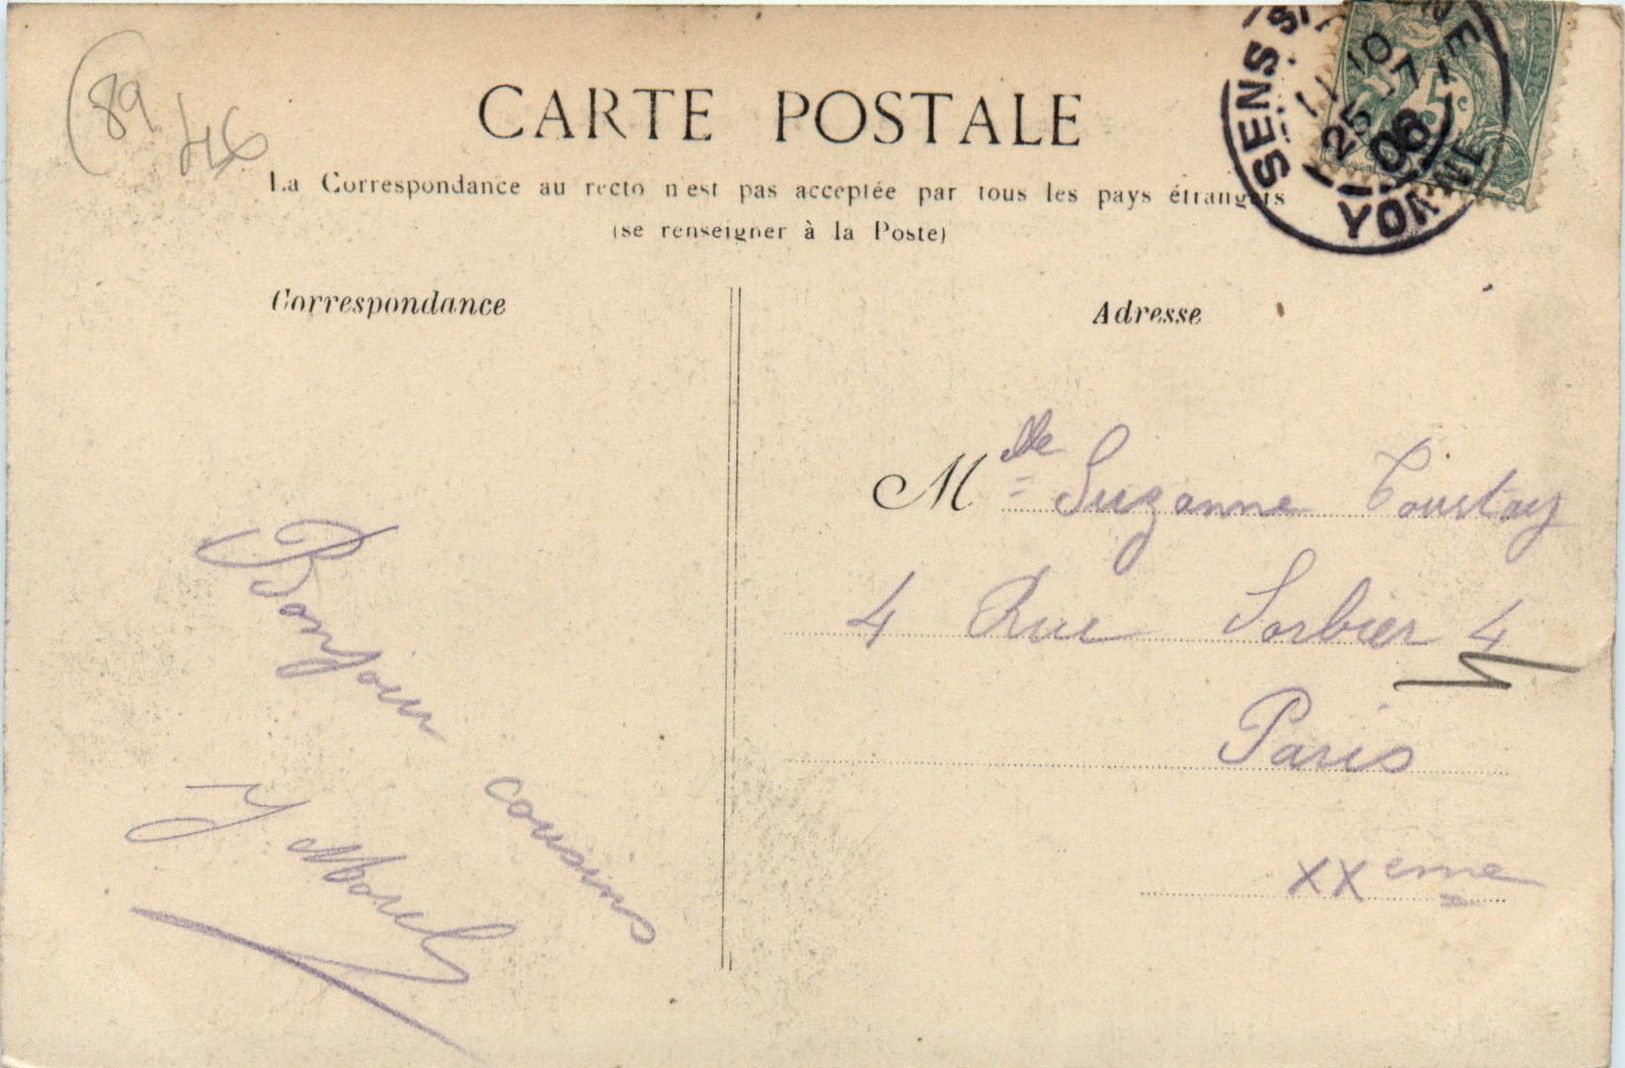 89
46
CARTE POSTALE
La Correspondance au recto n'est pas acceptée par tous les pays étrangers
(se renseigner à la Poste)
SENS
YONNE
25
06
5c
Correspondance
Adresse
Mlle Suzanne Toustay
4 Rue Sorbier 4
Paris
XXeme
Bonjour
cousins
Y. Morel